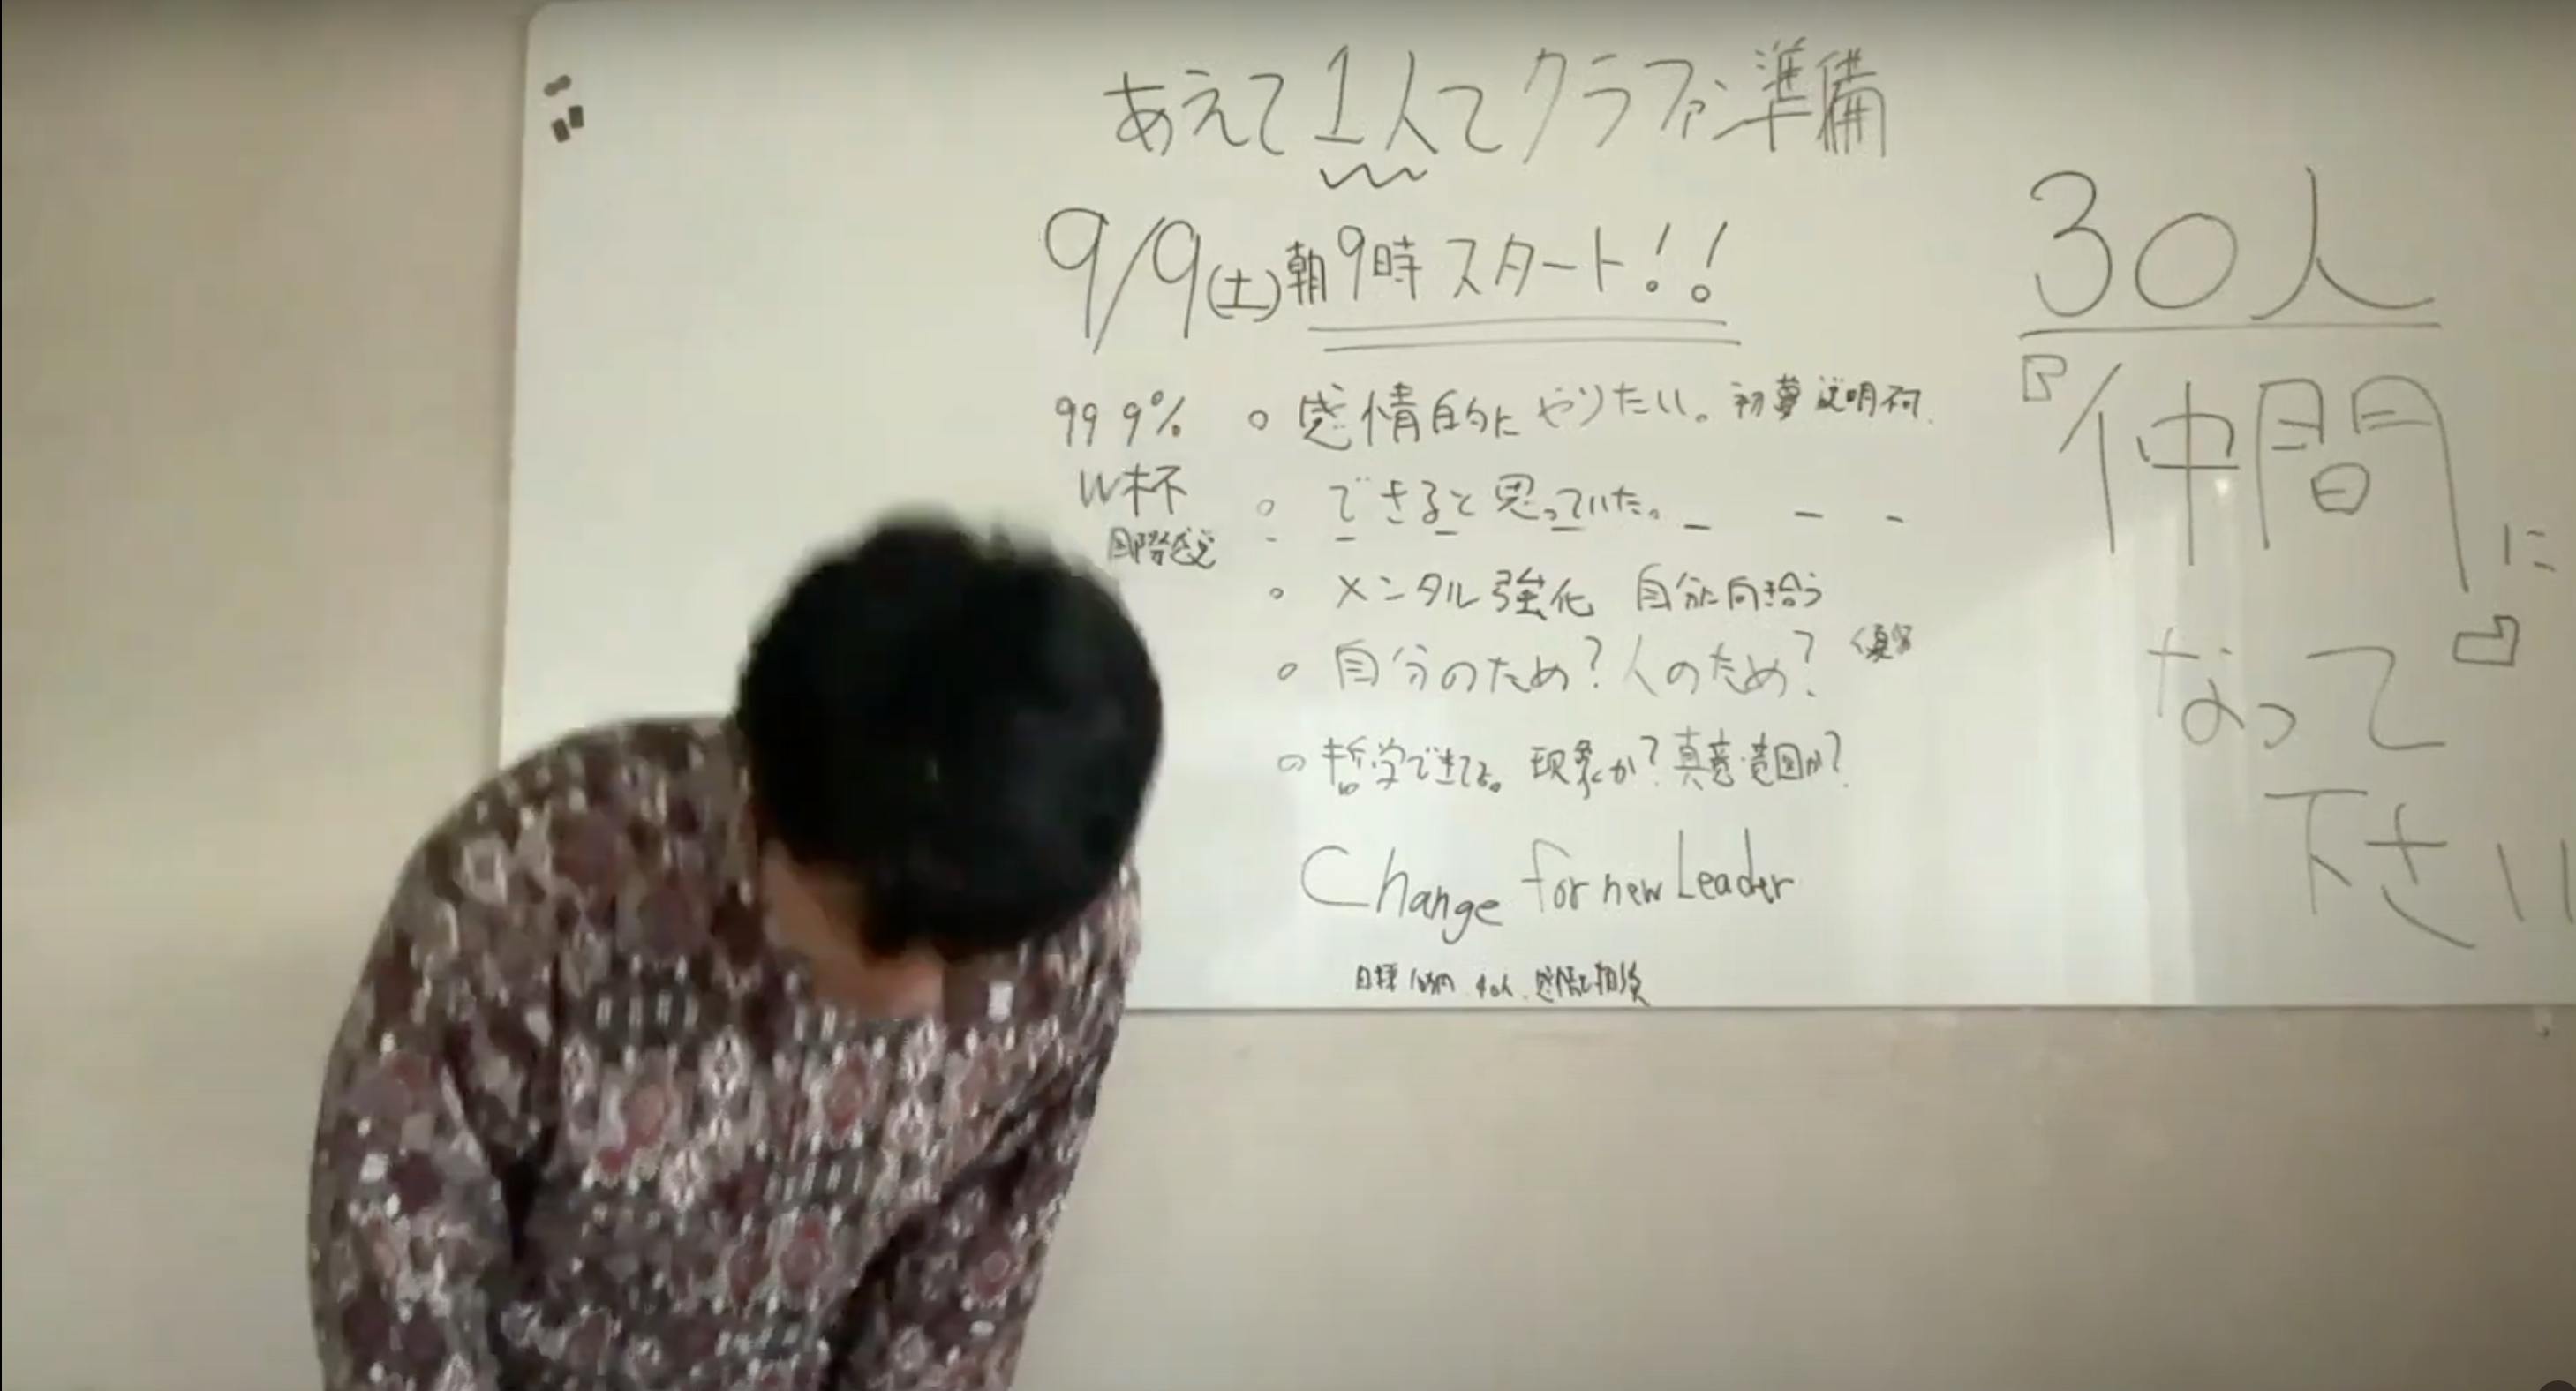 あえて1人でクラファン準備
9/9(土)朝9時スタート!!
99 9% ○ 感情的にやりたい。初夢説明
W杯 ○ できると思っていた。
○ メンタル強化 自分に向
○ 自分のため?人のため?
○ 哲学 現象か?真意・意図か?
Change for new Leader
目標
30人
『仲間に
なって』
下さい